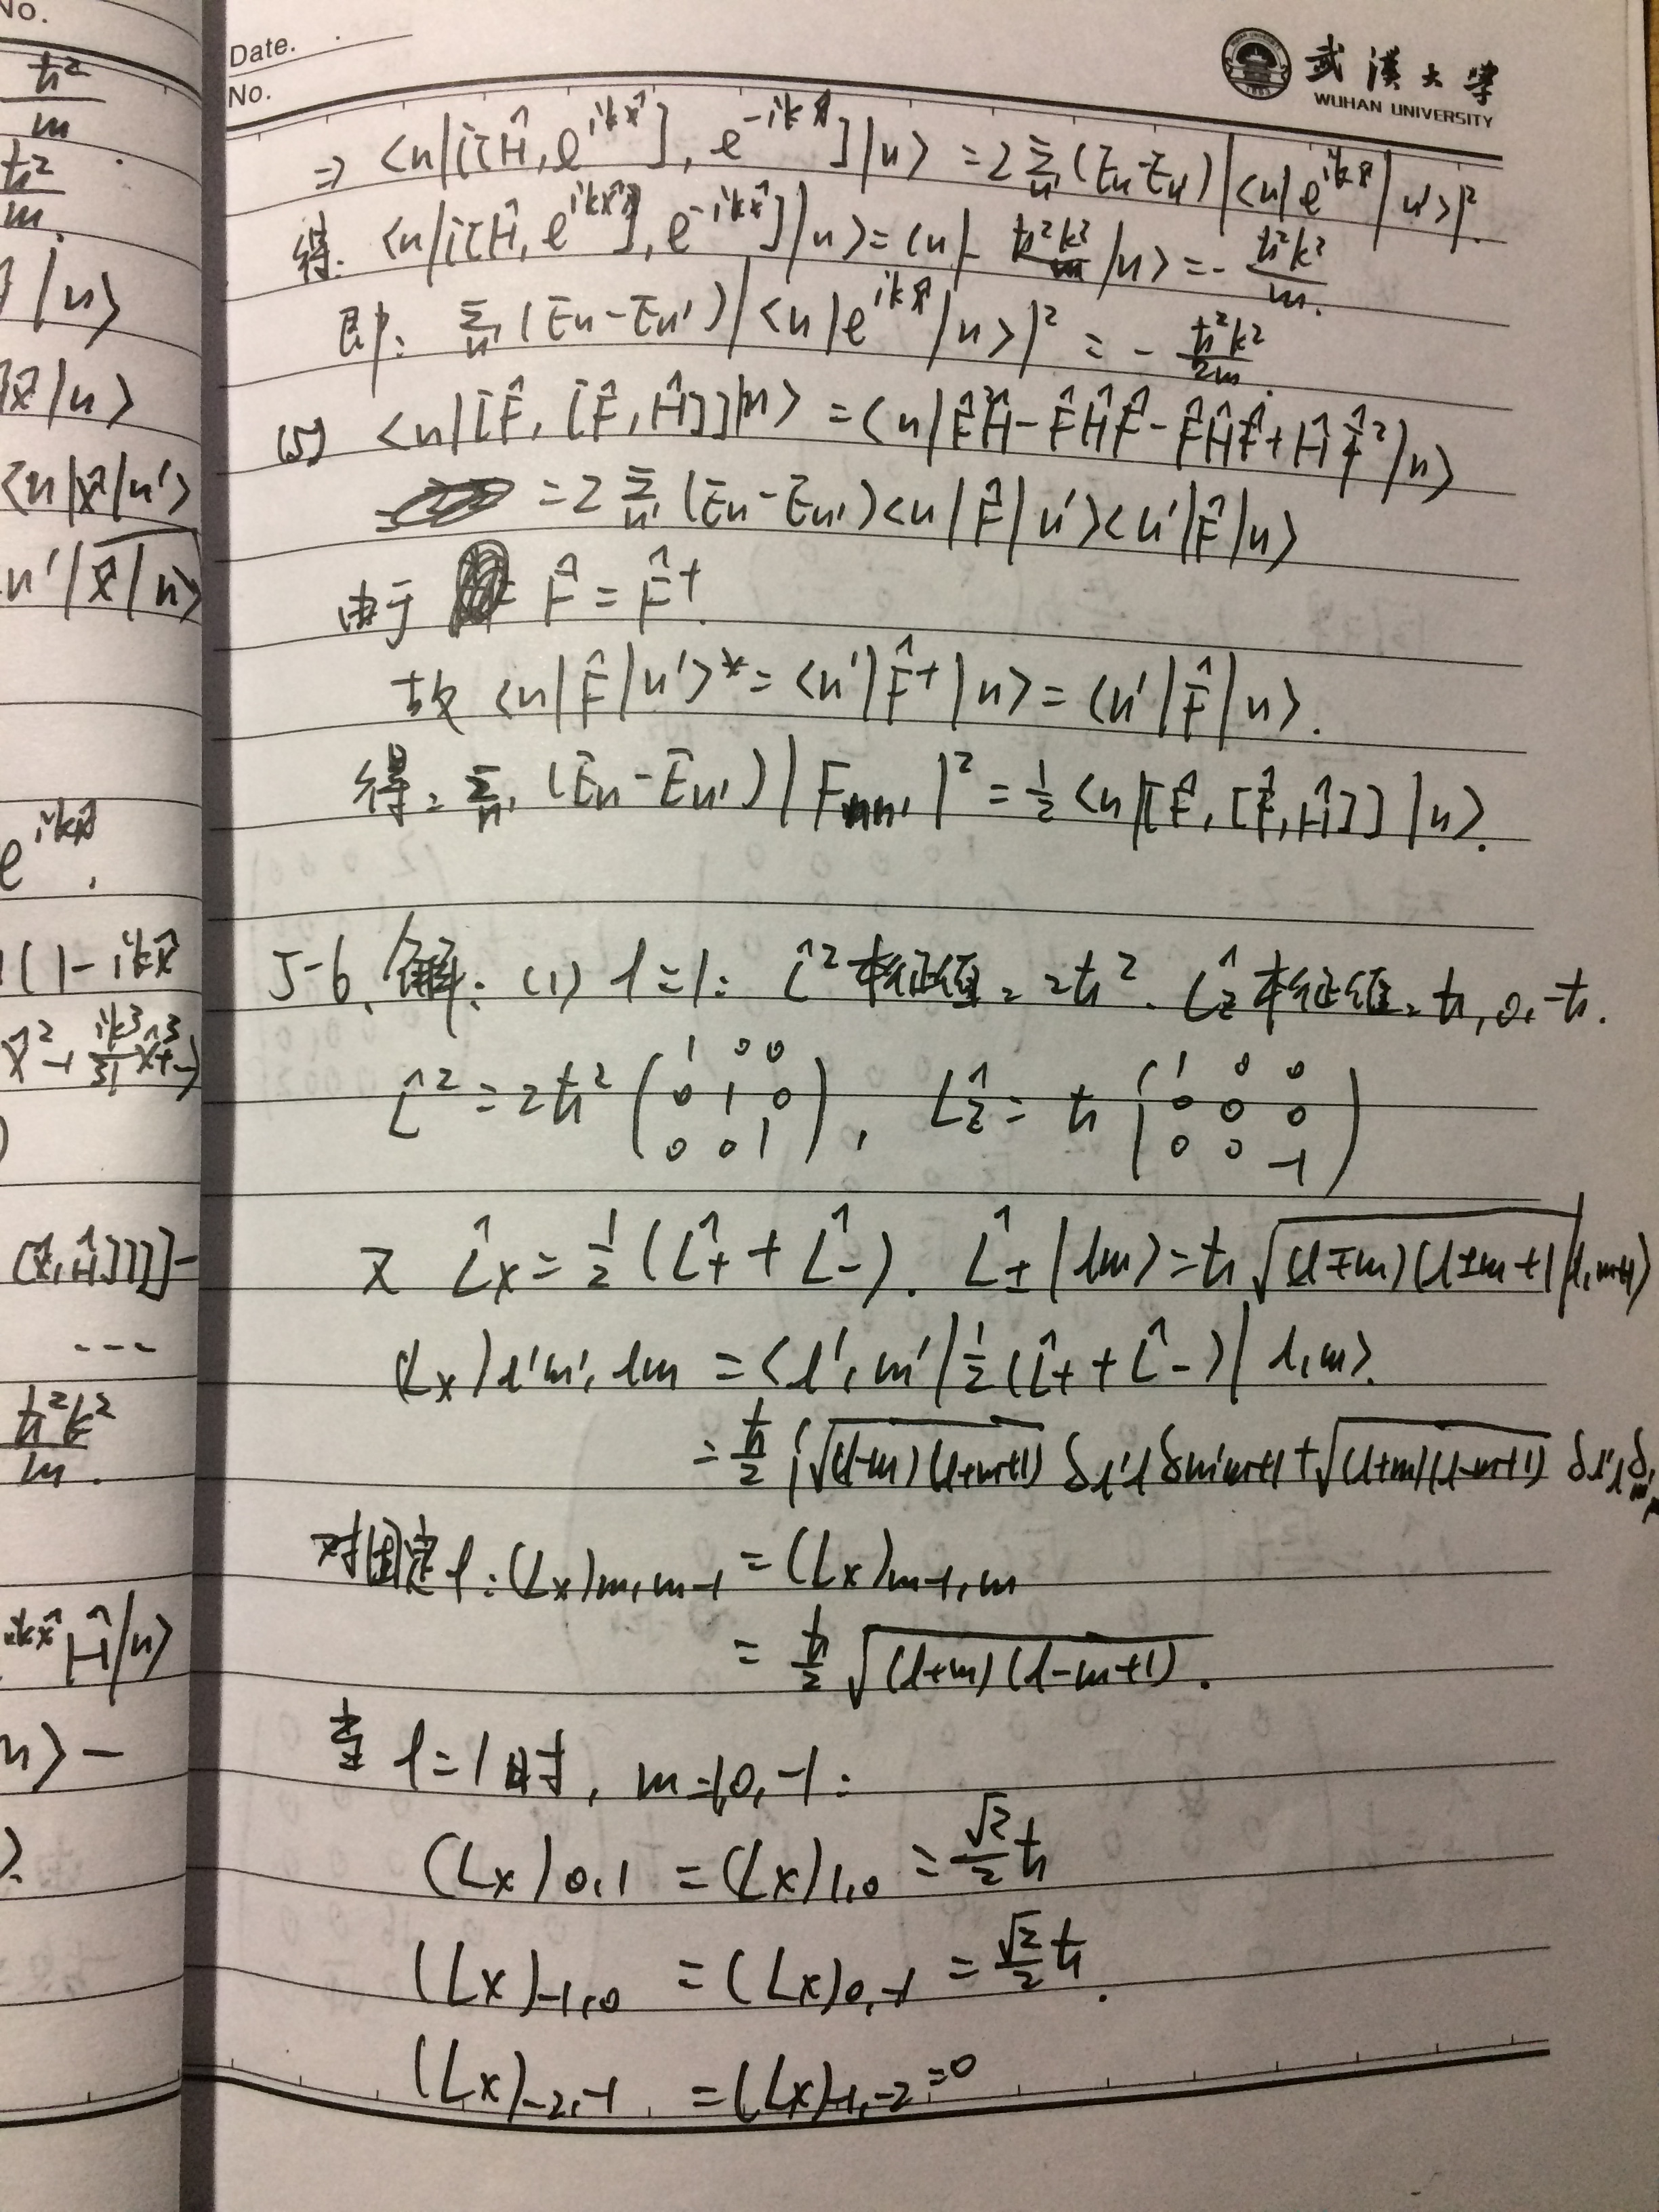 No.
ħ²/m
ħ²/m.
|n⟩
x̂|n⟩
⟨n|x̂|n'⟩
n'|x̂|n⟩
e^{ikx̂},
(1-ikx̂
ħ²k²/m.
Ĥ|n⟩
Date.
No.
武漢大學
WUHAN UNIVERSITY
⇒ ⟨n|[[Ĥ, e^{ikx̂}], e^{-ikx̂}]|n⟩ = 2 Σ_{n'} (En-En') |⟨n|e^{ikx̂}|n'⟩|².
得: ⟨n|[[Ĥ, e^{ikx̂}], e^{-ikx̂}]|n⟩ = ⟨n|- ħ²k²/m |n⟩ = - ħ²k²/m.
即: Σ_{n'} (En-En') |⟨n|e^{ikx̂}|n⟩|² = - ħ²k²/2m.
(5) ⟨n|[F̂, [F̂, Ĥ]]|n⟩ = ⟨n|F̂²Ĥ - F̂ĤF̂ - F̂ĤF̂ + ĤF̂²|n⟩
= 2 Σ_{n'} (En-En')⟨n|F̂|n'⟩⟨n'|F̂|n⟩
由于 F̂ = F̂†.
故 ⟨n|F̂|n'⟩* = ⟨n'|F̂†|n⟩ = ⟨n'|F̂|n⟩.
得: Σ_{n'} (En-En')|F_{nn'}|² = 1/2 ⟨n|[F̂, [F̂, Ĥ]]|n⟩.
5-6. 解: (1) l=1: L̂² 本征值: 2ħ². L̂z 本征值: ħ, 0, -ħ.
L̂² = 2ħ² (1 0 0; 0 1 0; 0 0 1), L̂z = ħ (1 0 0; 0 0 0; 0 0 -1)
又 L̂x = 1/2 (L̂+ + L̂-). L̂± |lm⟩ = ħ √(l∓m)(l±m+1) |l, m±1⟩
(Lx)l'm', lm = ⟨l', m'|1/2 (L̂+ + L̂-)|l, m⟩.
= ħ/2 {√(l-m)(l+m+1) δl'l δm'm+1 + √(l+m)(l-m+1) δl'l δm'
对固定 l: (Lx)m, m-1 = (Lx)m-1, m
= ħ/2 √(l+m)(l-m+1).
当 l=1 时, m=1, 0, -1:
(Lx)0,1 = (Lx)1,0 = √2/2 ħ
(Lx)-1,0 = (Lx)0,-1 = √2/2 ħ.
(Lx)-2,-1 = (Lx)-1,-2 = 0